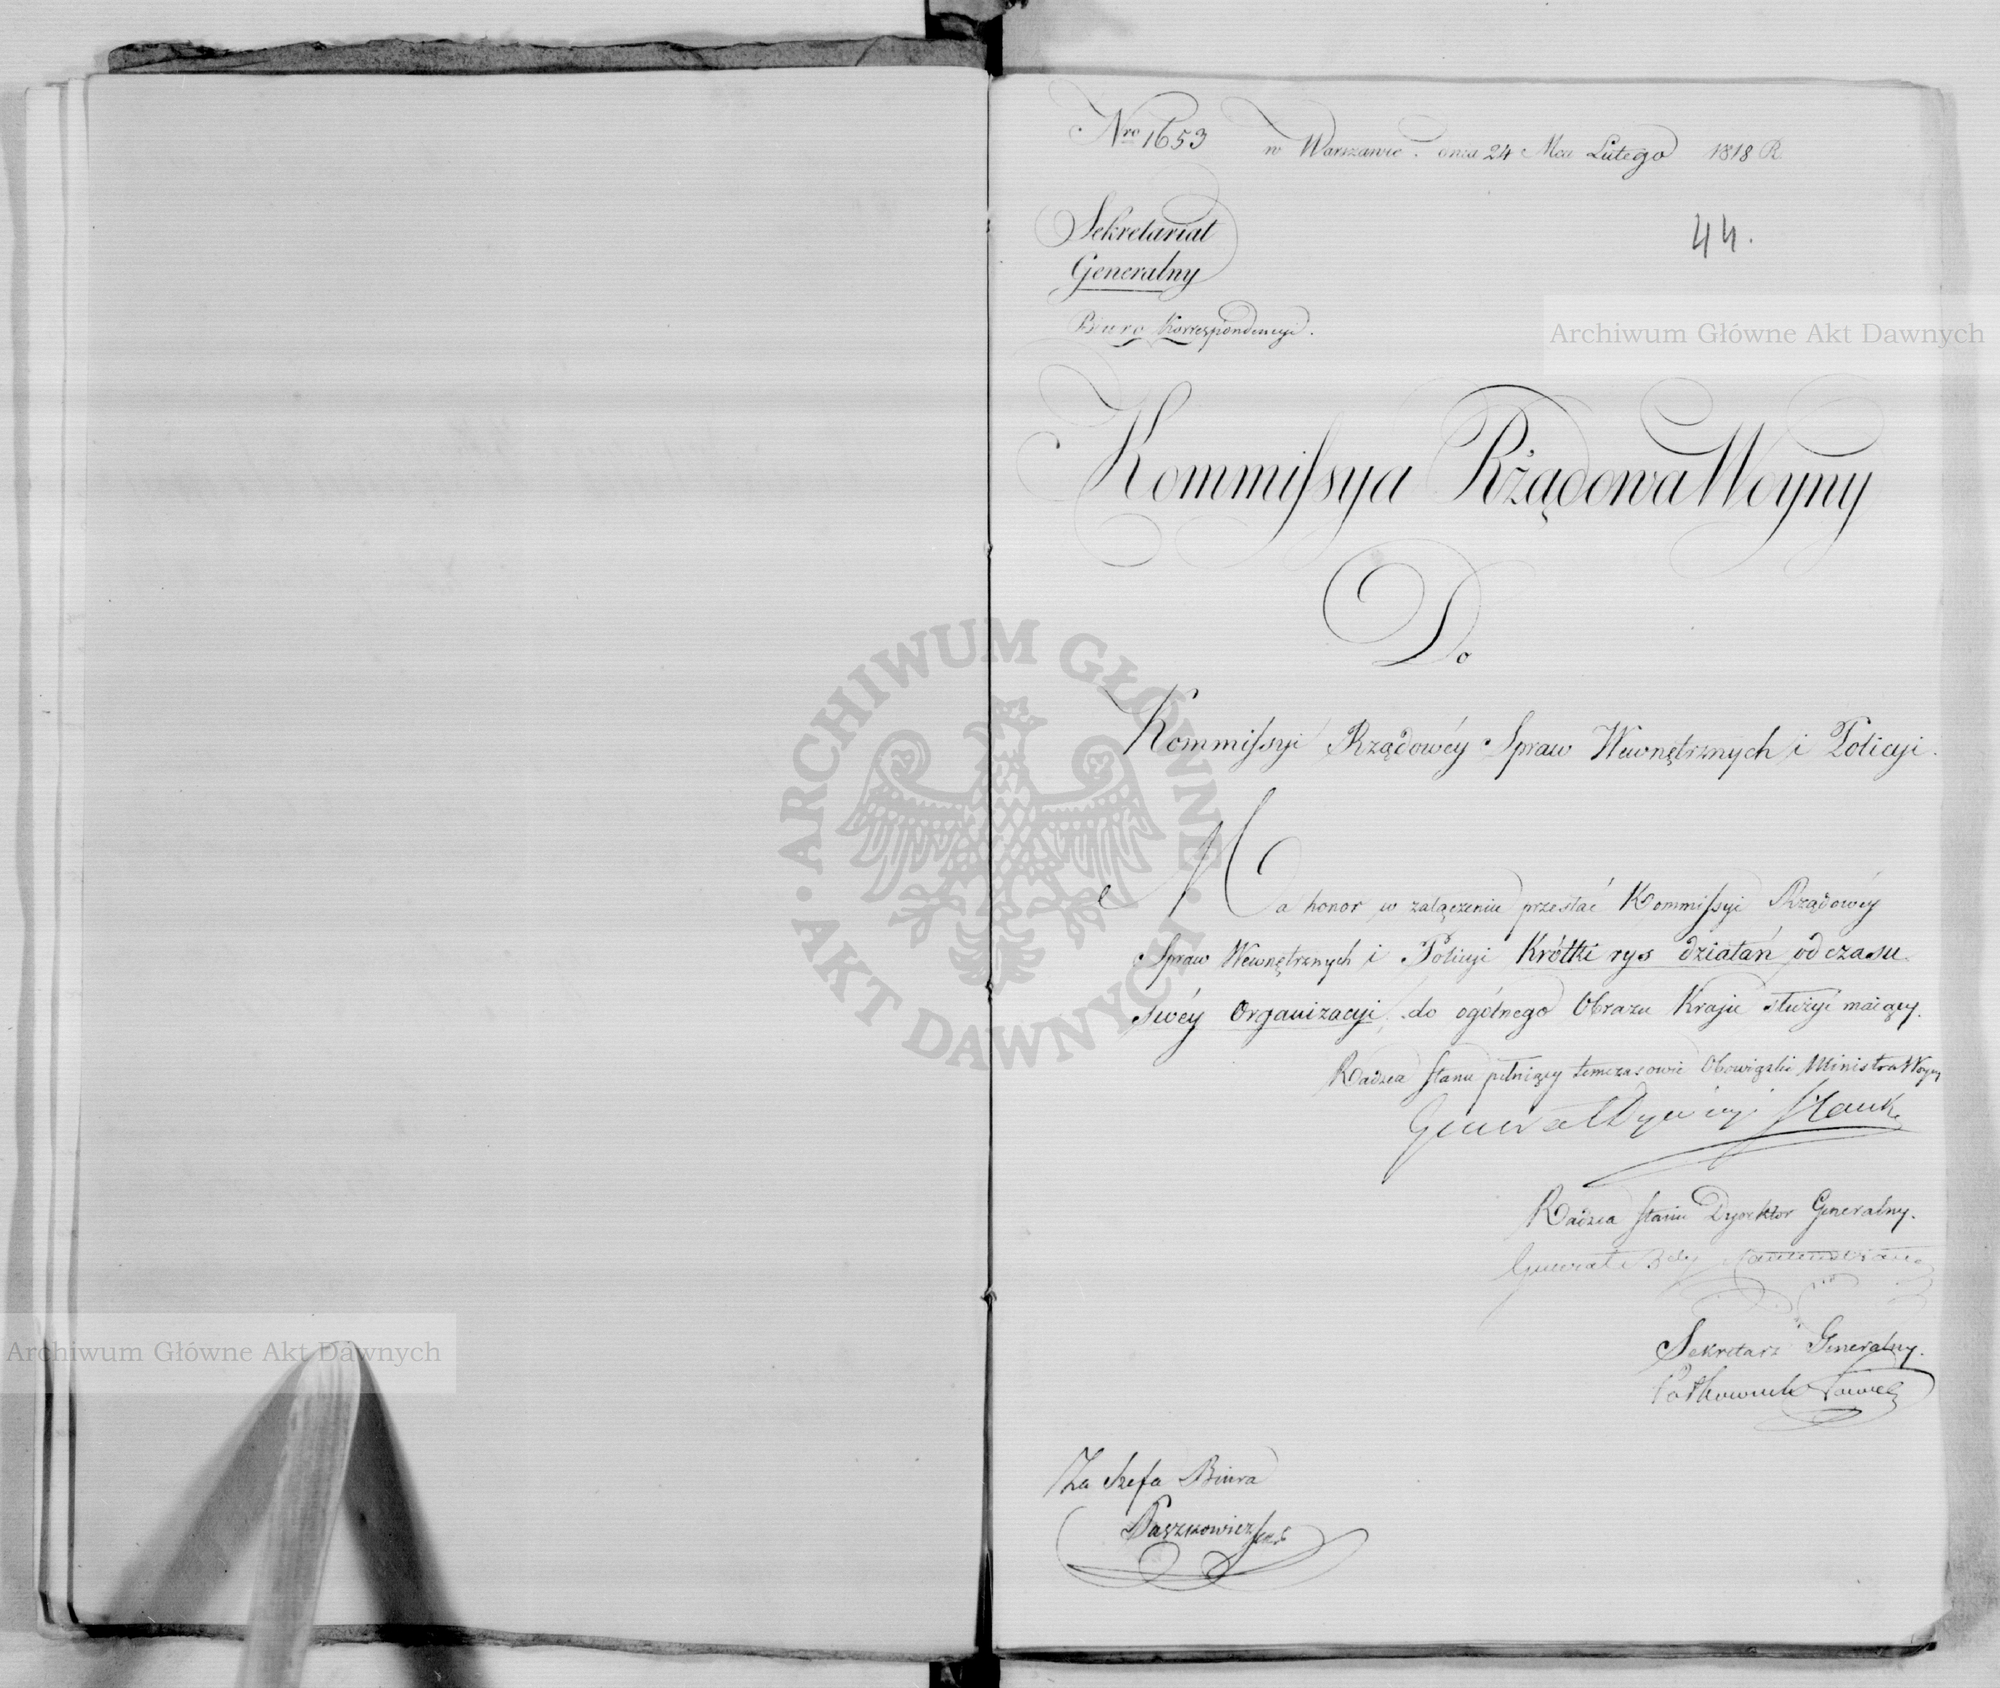 Nro 1653 w Warszawie. dnia 24 Mca Lutego 1818 R.
44.
Sekretariat
Generalny
Biuro Korrespondencyi.
Archiwum Główne Akt Dawnych
Kommissya Rżądowa Woyny
Do
Kommissyi Rządowéy Spraw Wewnętrznych i Policyi.
ARCHIWUM GŁÓWNE · AKT DAWNYCH ·
Ma honor w załączeniu przesłać Kommissyi Rządowéy
Spraw Wewnętrznych i Policyi Krótki rys działań od czasu
swéy Organizacyi, do ogólnego Obrazu Kraju służyć maiący.
Radzca Stanu pełniący temczasowie Obowiązki Ministra Woyny
Generał Dywizyi Hauke
Radzca Stanu Dyrektor Generalny.
Generał Bdy
Sekretarz Generalny.
Pułkownik
Archiwum Główne Akt Dawnych
Za Szefa Biura
Paszkowicz